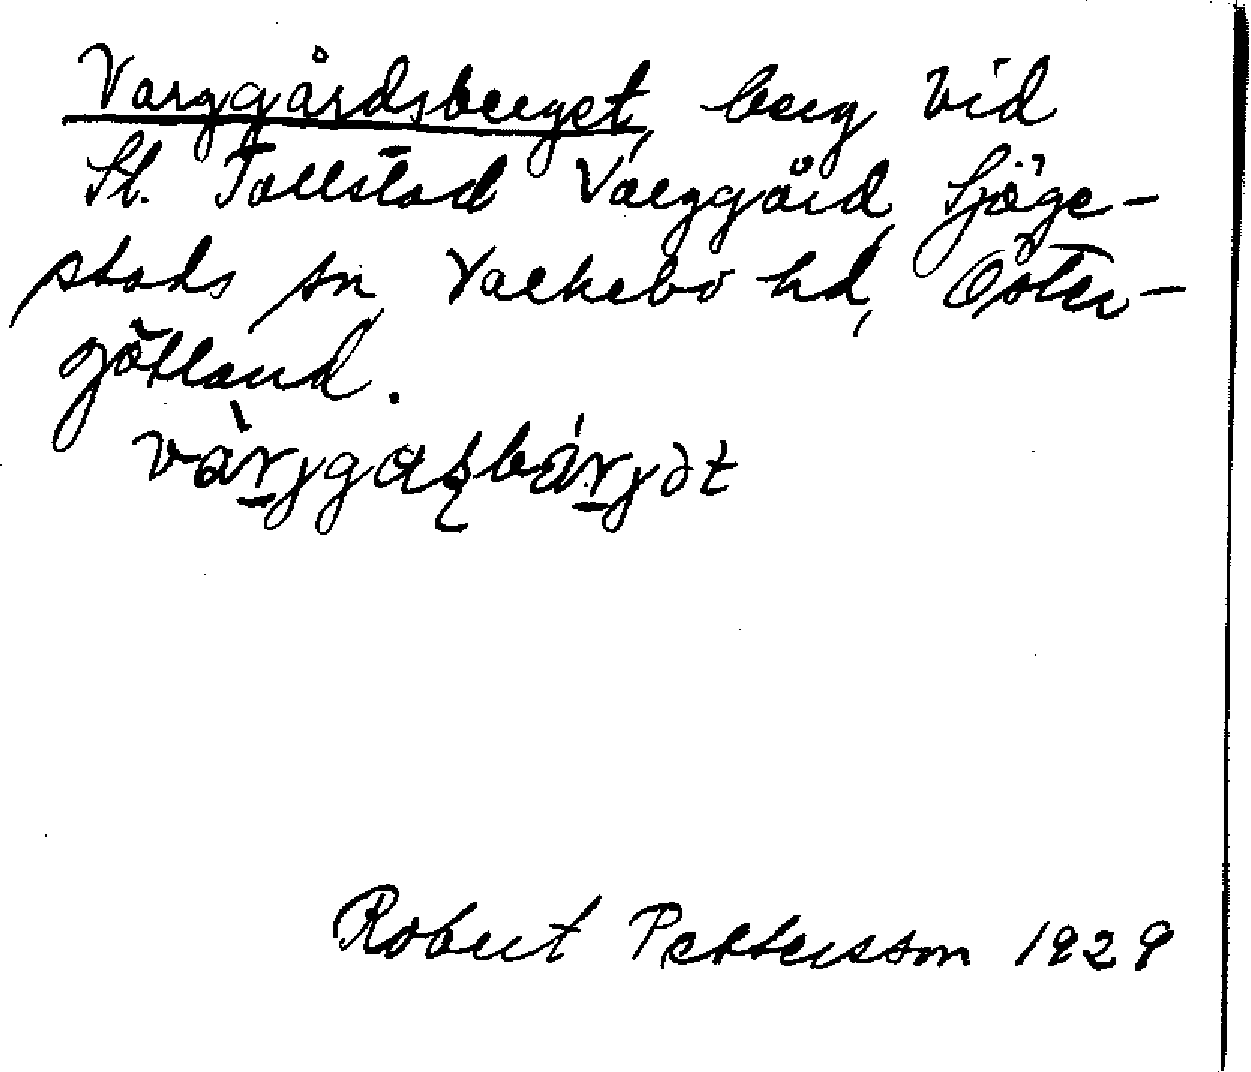 Varggårdsberget, berg vid
St. Tollstad Varggård, Sjöge-
stads sn, Valkebo hd, Öster-
götland.
Robert Pettersson 1929